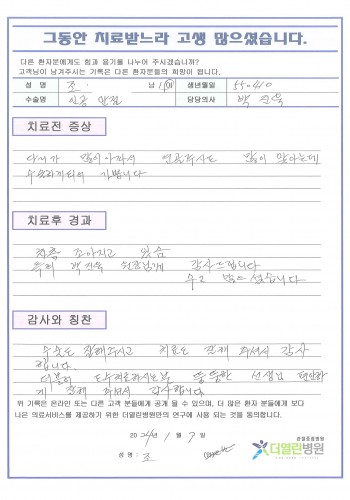 그동안 치료받느라 고생 많으셨습니다.
다른 환자분에게도 힘과 용기를 나누어 주시겠습니까?
고객님이 남겨주시는 기록은 다른 환자분들의 희망이 됩니다.
성 명 조. 남/여 생년월일 550410
수술명 인공 관절 담당의사 백
치료전 증상
다리가 많이 아파서 연골주사도 많이 맞았는데
수술하게되어 기쁩니다
치료후 경과
점점 조아지고 있음
특히 백 원장님께 감사드립니다
수고 많으셨습니다
감사와 칭찬
수술도 잘해주시고 치료도 잘해 주셔서 감사
합니다.
더불어 도수치료하시는분 뚱뚱한 선생님 편안하
게 잘해 주셔서 감사합니다
위 기록은 온라인 또는 다른 고객 분들에게 공개 될 수 있으며, 더 많은 환자 분들에게 보다
나은 의료서비스를 제공하기 위한 더열린병원만의 연구에 사용 되는 것을 동의합니다.
2024년 1월 7일
성 명 : 조
관절중점병원
더열린병원